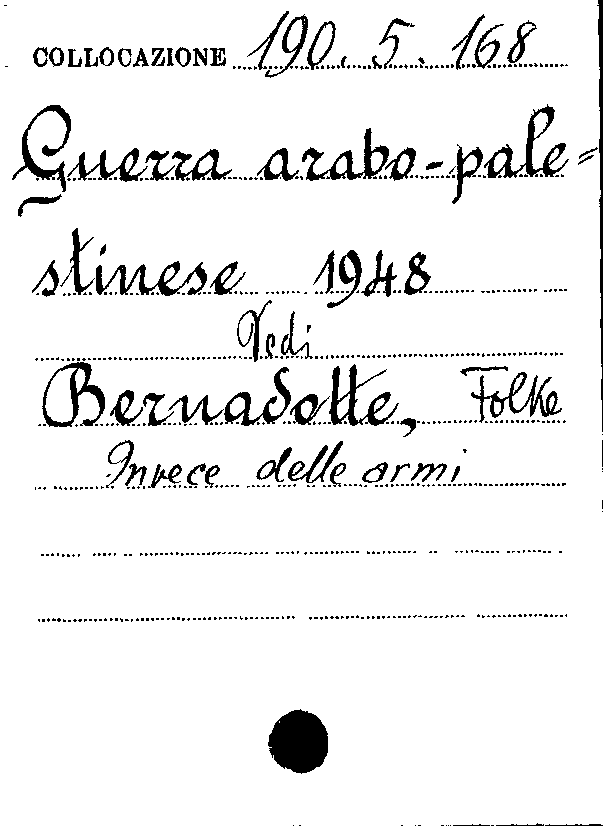 COLLOCAZIONE 190. 5. 168
Guerra arabo-pale=
stinese 1948
Vedi
Bernadotte, Folke
Invece delle armi